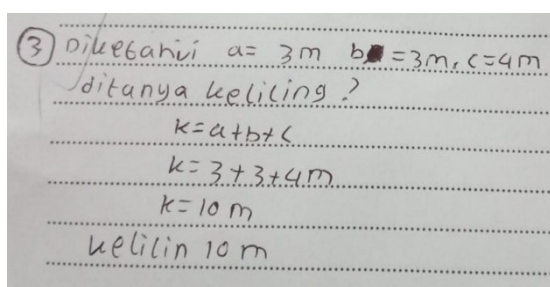 ③ Diketahui a= 3m b=3m, c=4m
ditanya keliling?
k=a+b+c
k=3+3+4m
k=10 m
kelilin 10 m